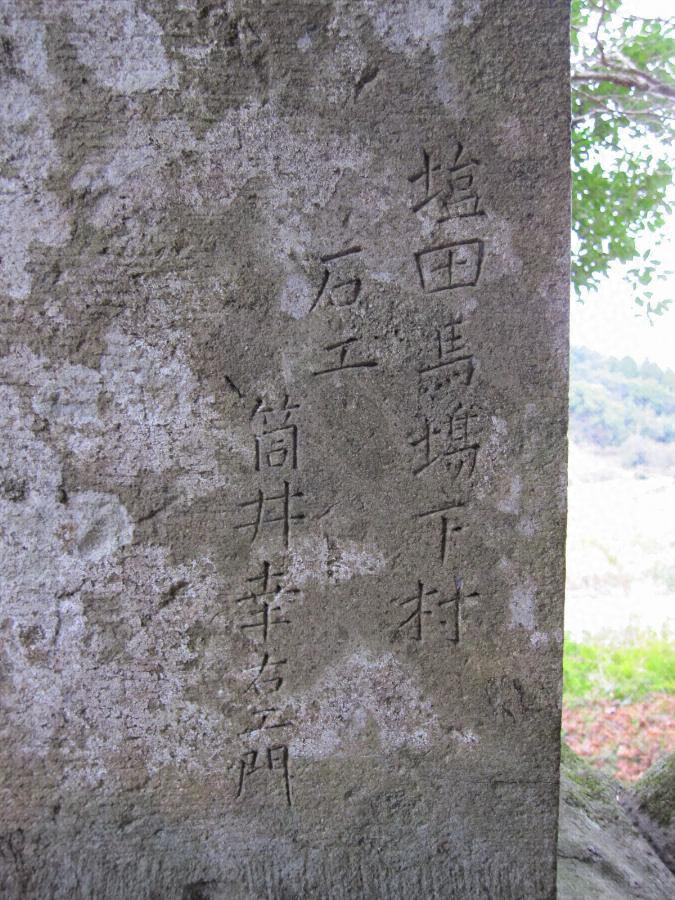 塩田馬場下村
石工
筒井幸右エ門